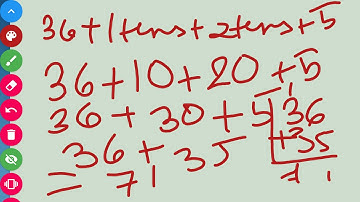 36+1tens+2tens+5
36+10+20+5
36+30+5
36+35
= 71
36
+35
71